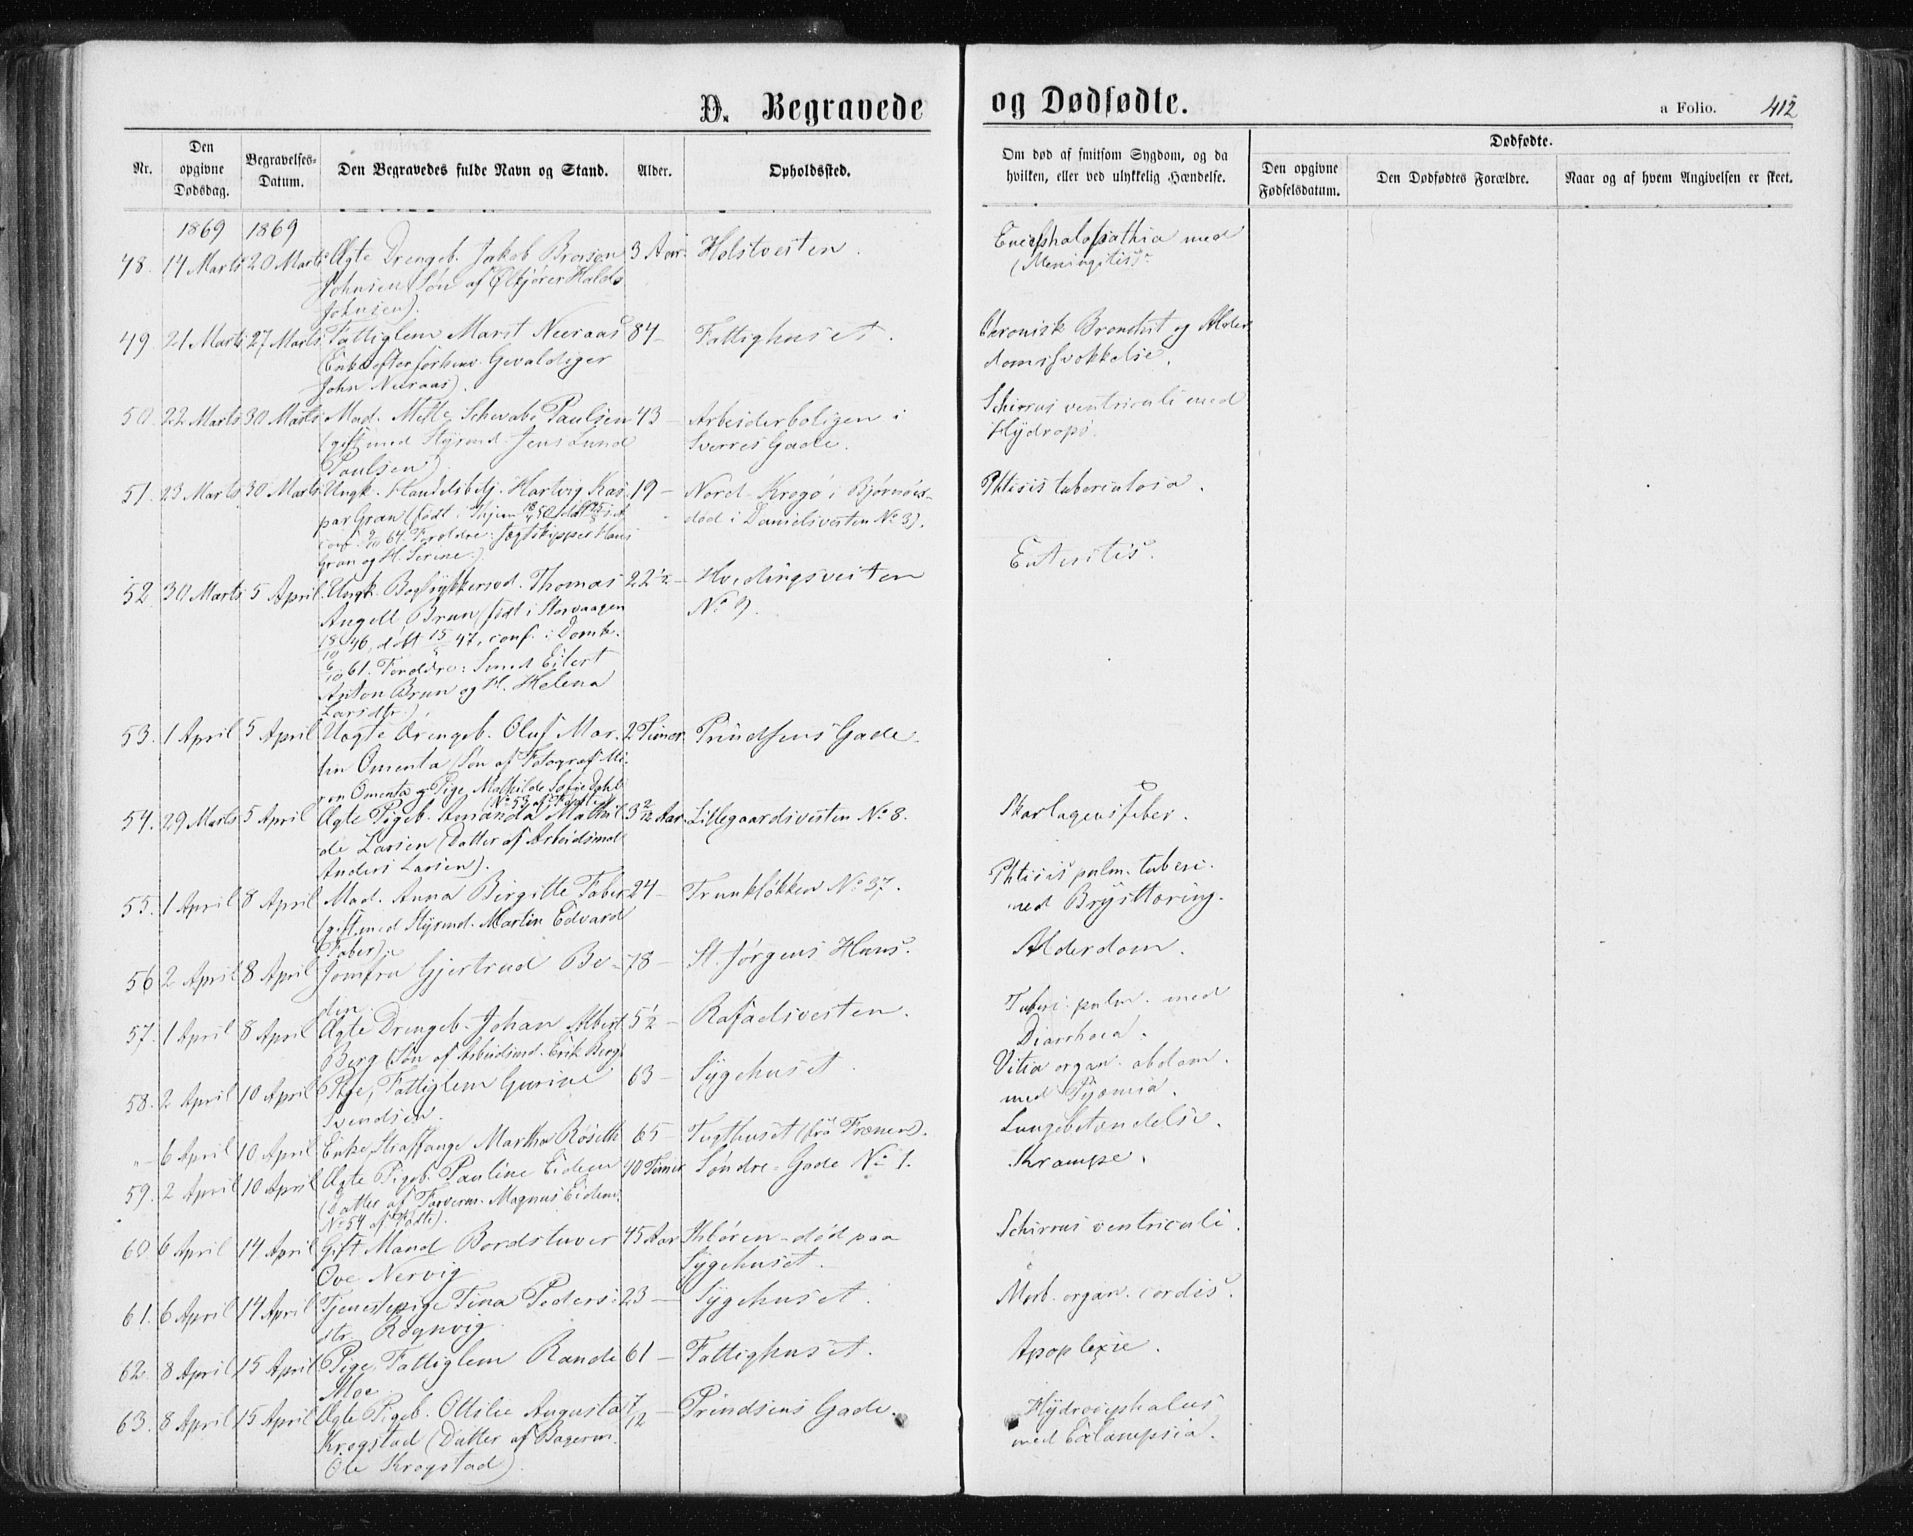 D. Begravede og Dødfødte.
a Folio. 412
Nr.
Den opgivne Dødsdag.
Begravelses-Datum.
Den Begravedes fulde Navn og Stand.
Alder.
Opholdssted.
Om død af smitsom Sygdom, og da hvilken, eller ved ulykkelig Hændelse.
Dødfødte.
Den opgivne Fødselsdatum.
Den Dødfødtes Forældre.
Naar og af hvem Angivelsen er skeet.
1869 1869
48. 14 Marts 20 Marts Ægte Drengeb. Jakob Brorson 3 Aar Holstvesten. Encephalopathia med
Johnsen (Søn af Ølkjører
Johnsen). (Meningitis)
49. 21 Marts 27 Marts Fattiglem Marit Neeraas 84 - Fattighuset. Chronisk Bronchit og Alder
(Enke efter forhenv. Gevaldiger domssvækkelse.
John Neeraas).
50. 22 Marts 30 Marts Mad. Mette Schwabe Paulsen 43 - Arbeiderboligen i Schirrus ventriculi med
(gift med Styrmd. Jens Lund Sverres Gade. Hydrops.
Paulsen)
51. 23 Marts 30 Marts Ungk. Handelsbetj. Hartvig Kas 19 - Nord-Krogø i Bjørnør Phtisis tuberculosa.
par Gran (født død i Danielsvesten No 3).
conf. 64. Forældre: Jægtskipper Hans
Gran og H. Serine.)
52. 30 Marts 5 April Ungk. Bogtrykkersvd. Thomas 22½ - Hvedingsvesten Enteritis.
Angell Brun (født i Storvaagen No 9.
18/10 46, døbt 15/ 47, conf. i Domk.
6/10 61. Forældre: Smed Eilert
Anton Brun og H. Helena
Larsdtr.)
53. 1 April 5 April Uægte Drengeb. Oluf Mar- 2 Timer Prindsens Gade.
tin Omenta (Søn af Fotograf Mi-
Omenta og Pige Mathilde Sofie Dahl
(No 53 af Fødte)
54. 29 Marts 5 April Ægte Pigeb. Amanda Mathil 3 2/12 Aar Lillegaardsvesten No 8. Skarlagensfeber.
de Larsen (Datter af Arbeidsmd
Anders Larsen).
55. 1 April 8 April Mad. Anna Birgitte Faber 24 - Frunkløkken No 37. Phtisis pulm. tuberc.
(gift med Styrmd. Martin Edvard med Brysttæring.
Faber).
56 2 April 8 April Jomfru Gjertrud Bo- 78 - St. Jørgens Huus. Alderdom.
din
57. 1 April 8 April Ægte Drengeb. Johan Albert 5½ - Rafadsvesten. Tuberc. pulm. med
Berg (Søn af Arbeidsmd. Erik Berg) Diarrhoea.
58. 2 April 10 April Pige, Fattiglem Gurine 63 - Sygehuset. Vitia organ. abdom.
Svendsen. med Pyæmia.
" - 6 April 10 April Enke Straffange Martha Røseth 65 - Tugthuset (fra Frænen). Lungebetændelse.
59. 2 April 10 April Ægte Pigeb. Pauline Eidem 40 Timer Søndre-Gade No 1. Krampe.
(Datter af Farverm. Magnus Eidem.
No 54 af Fødte).
60. 6 April 14 April Gift Mand Bordstuver 45 Aar Kløren - død paa Schirrus ventriculi.
Ove Nervig Sygehuset.
61. 6 April 14 April Tjenestepige Tina Peders- 23 - Sygehuset. Morb. organ. cordis.
dtr. Rognvig.
62. 8 April 15 April Pige, Fattiglem Randi 61 - Fattighuset. Apoplexie.
Moe
63. 8 April 15 April Ægte Pigeb. Ottilie Augusta 7/12 - Prindsens Gade. Hydrocephalus
Krogstad (Datter af Bagerm. med Eclampsia.
Ole Krogstad)